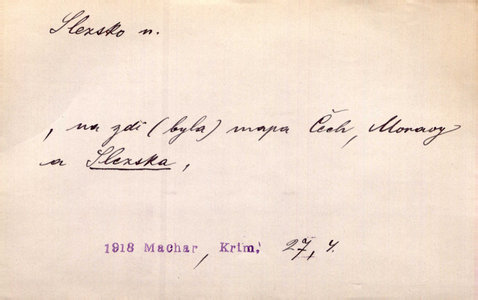 Slezsko n.
, na zdi (byla) mapa Čech, Moravy
a Slezska,
1918 Machar, Krim, 27, 4.